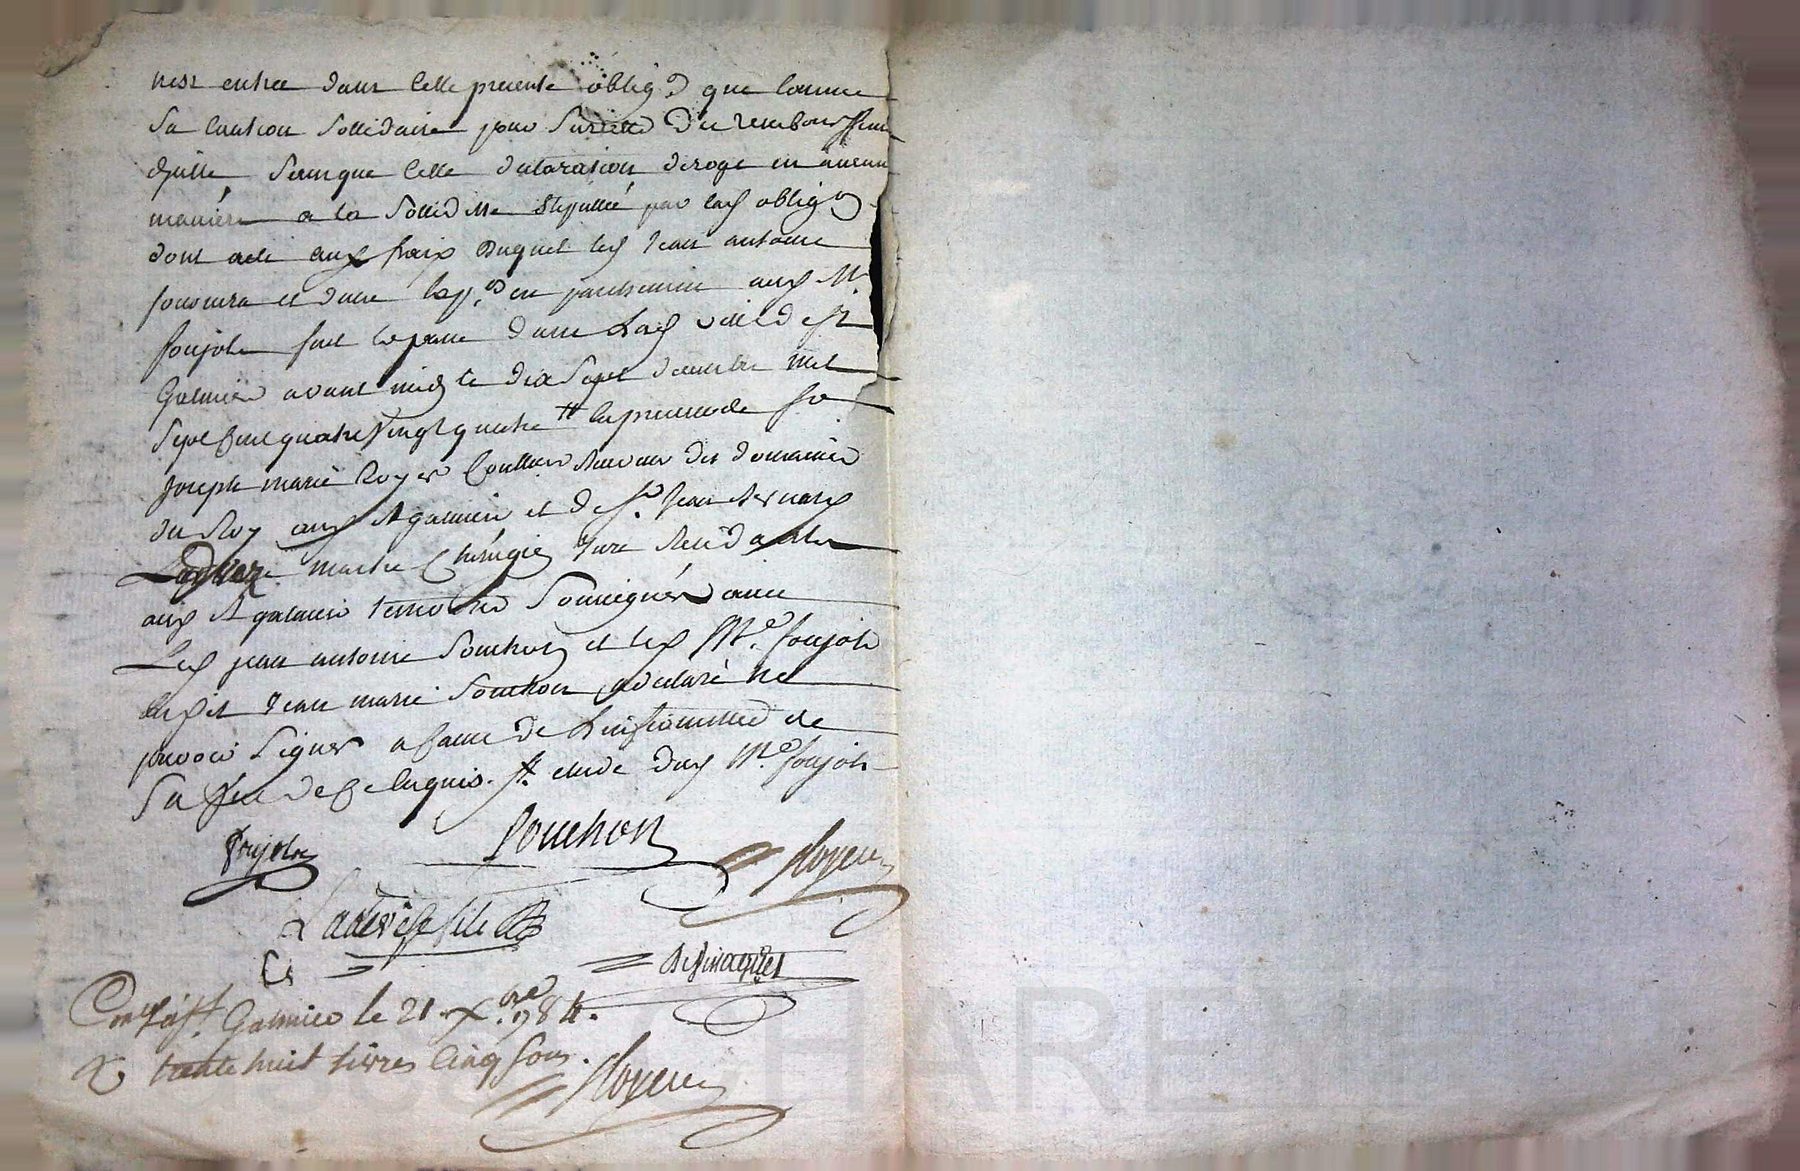 n'est entree dans cette presente oblig.on que comme
sa caution sollidaire pour sureté du remboursemen
d'jcelle sans que cette declaration deroge en aucune
maniere a la sollidité stipullée par lad oblig.on
dont acte aux fraix duquel led jean antoine
fournira et d'une exp.on en parchemin aud M.e
Poujol fait et passé dans lad ville de st
Galmier avant midy le dix sept decembre mil
sept cent quatre vingt quatre en presence de sr
joseph marie Royer Controlleur des domaines
du Roy aud st galmier et de sr. jean
maitre Chirurgien juré residants
aud st galmier temoins soussignés avec
Led jean antoine Souchon et led M.e Poujol
led jean marie Souchon a declaré ne
pouvoir signer a cause de
sa de ce enquis. st. etude dud M.e Poujol
Poujol Souchon Royer
Ladevèse fils
Desmaques
Con.lé à st. Galmier le 21 Xbre 1784.
R trente huit livres cinq sous.
Royer
CHAREYI